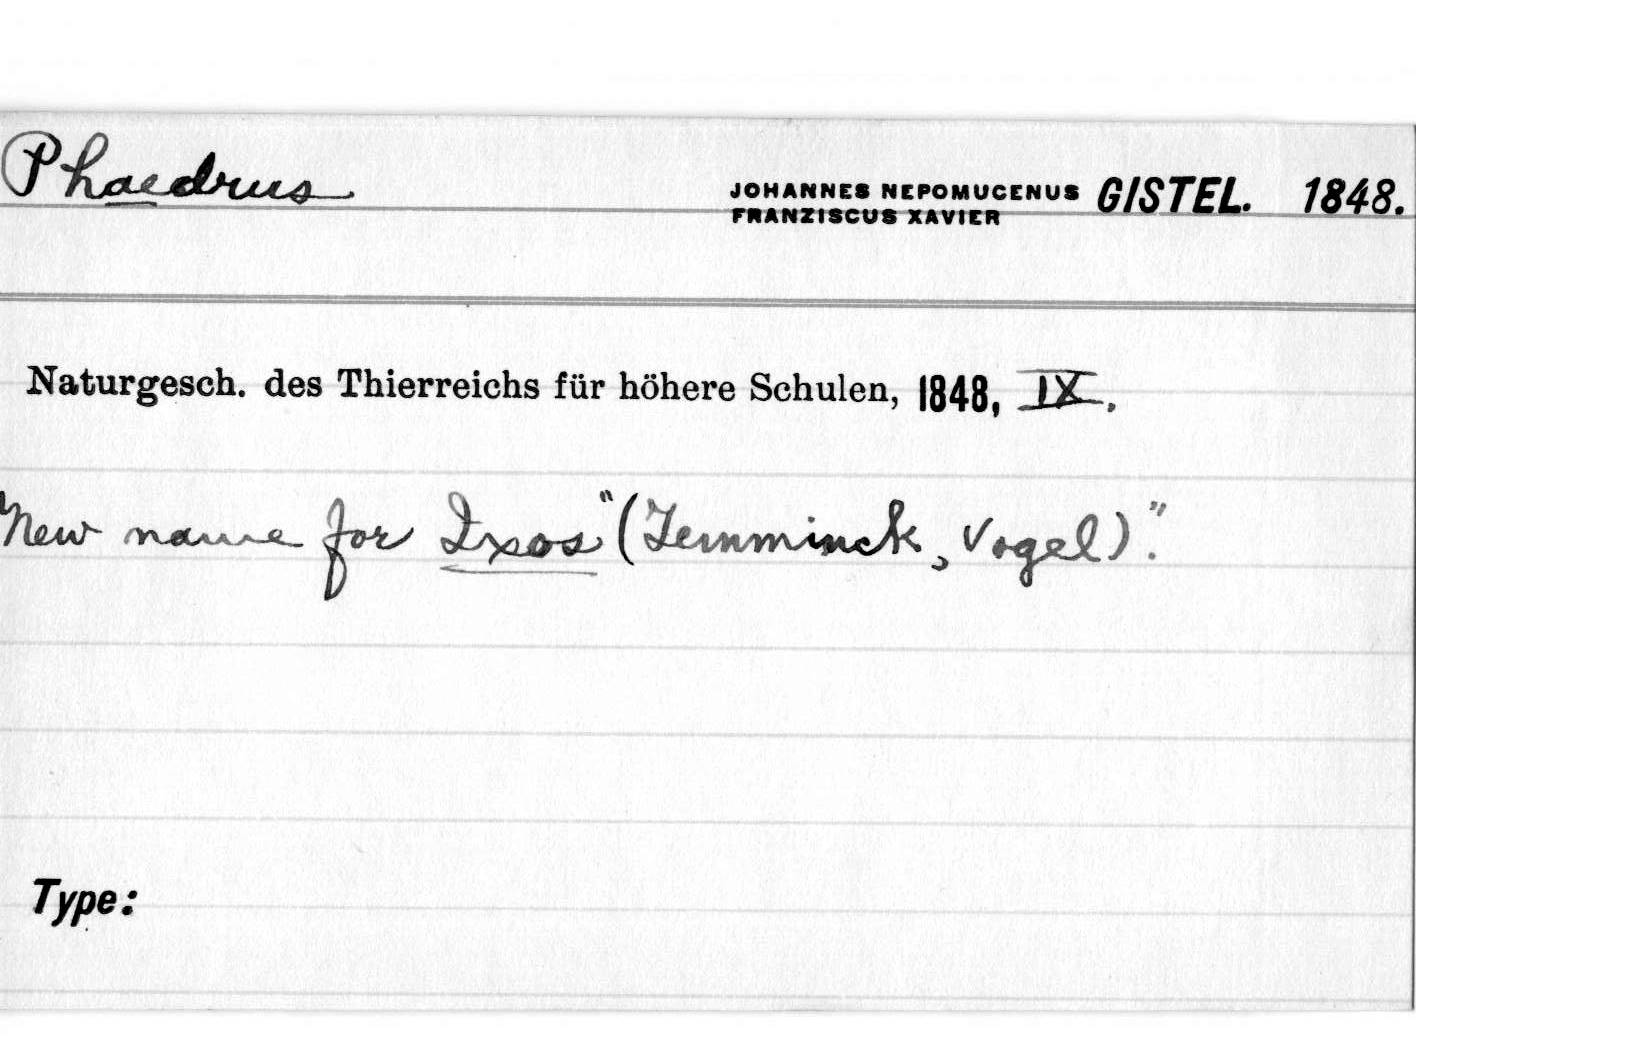 Phaedrus
JOHANNES NEPOMUCENUS GISTEL. 1848.
FRANZISCUS XAVIER
Naturgesch. des Thierreichs für höhere Schulen, 1848, IX.
New name for Ixos "(Temminck, Vogel)."
Type: